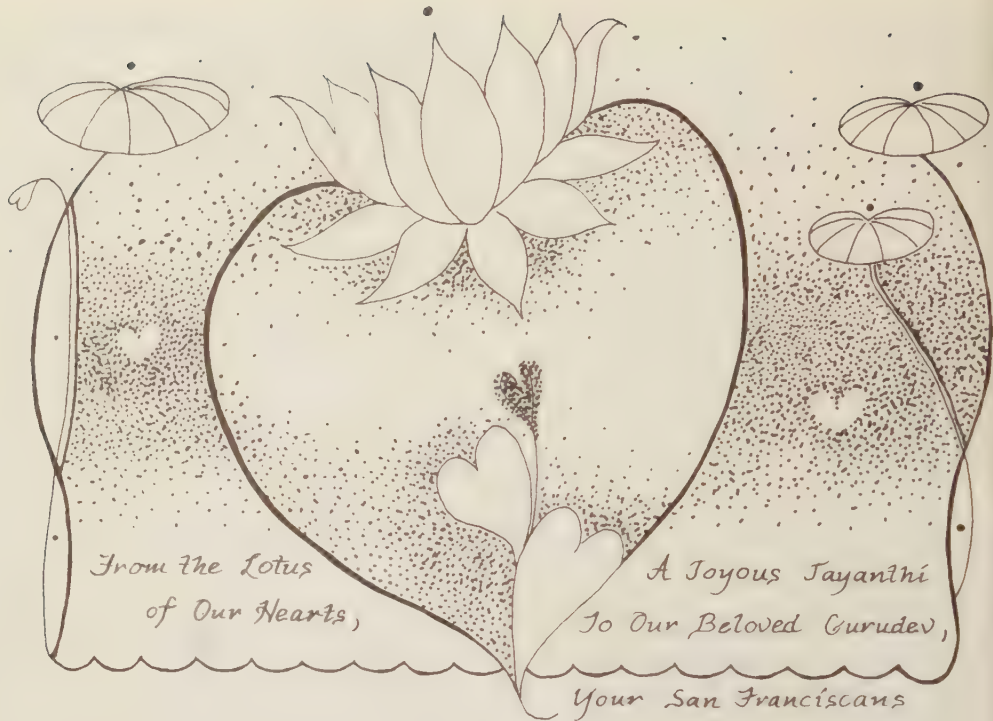 From the Lotus
of Our Hearts,
A Joyous Jayanthi
To Our Beloved Gurudev,
Your San Franciscans